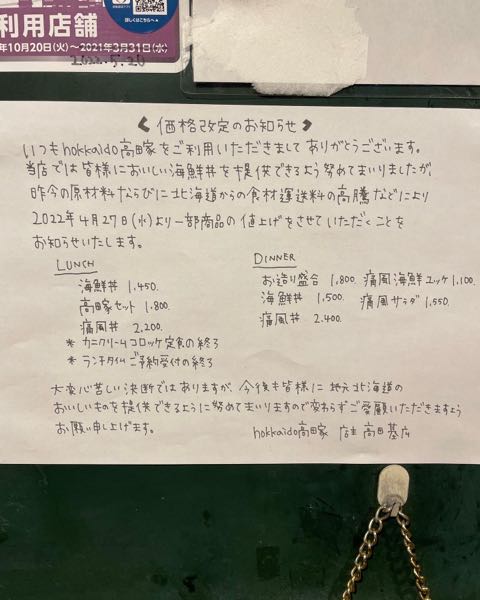 詳しくはこちらへ
利用店舗
年10月20日(火)～2021年3月31日(水)
2022.5.20
< 価格改定のお知らせ >
いつもhokkaido高田家をご利用いただきまして ありがとうございます。
当店では皆様においしい海鮮丼を提供できるよう努めてまいりましたが、
昨今の原材料ならびに北海道からの食材運送料の高騰などにより
2022年4月27日(水)より一部商品の値上げをさせていただくことを
お知らせいたします。
LUNCH
海鮮丼 1,450.
高田家セット 1,800.
痛風丼 2,200.
* カニクリームコロッケ定食の終了
* ランチタイムご予約受付の終了
DINNER
お造り盛合 1,800. 痛風海鮮ユッケ 1,100.
海鮮丼 1,500. 痛風サラダ 1,550.
痛風丼 2,400.
大変心苦しい決断ではありますが、今後も皆様に地元北海道の
おいしいものを提供できるように努めてまいりますので変わらずご愛顧いただきますよう
お願い申し上げます。
hokkaido高田家 店主 高田基